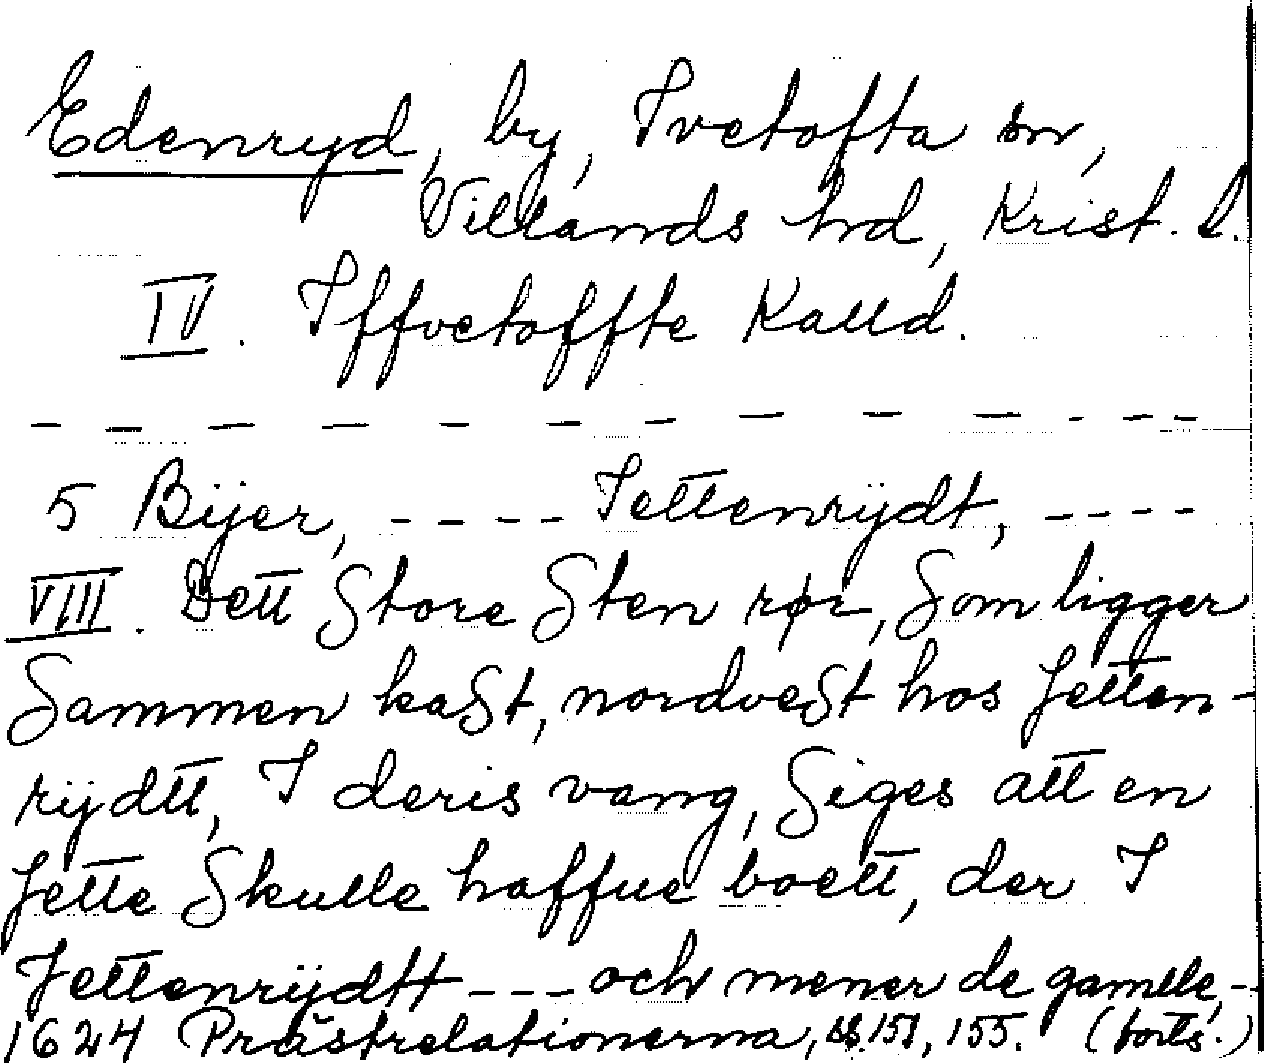 Edenryd, by, Ivetofta sn,
Villands hd, Krist. l.
IV. Iffvetoffte Kalld.
5 Bÿer, ---- Iettenrÿdt, ----
VIII. Dett Store Sten rør, Som ligger
Sammen kaSt, nordveSt hos Jetten-
rÿdtt, I deris vang, Siges att en
Jette Skulle haffue boett, der I
Jettenrÿdtt --- och mener de gamlle,--
1624 Prästrelationerna, ss. 151, 155. (forts.)